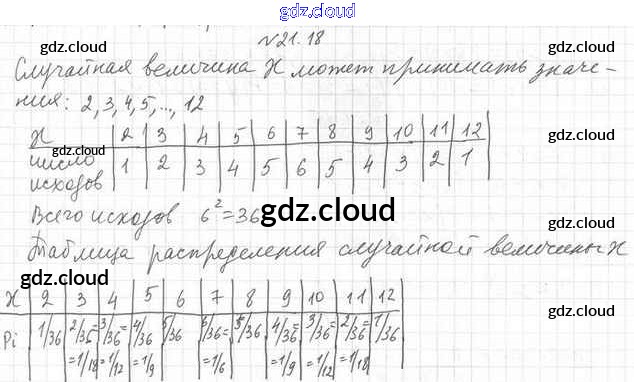 gdz.cloud
№21.18
gdz.cloud gdz.cloud
Случайная величина X может принимать значе-
ния: 2, 3, 4, 5, ..., 12
gdz.cloud
X | 2 | 3 | 4 | 5 | 6 | 7 | 8 | 9 | 10 | 11 | 12
gdz.cloud gdz.cloud
число исходов | 1 | 2 | 3 | 4 | 5 | 6 | 5 | 4 | 3 | 2 | 1
Всего исходов 6²=36
gdz.cloud gdz.cloud
Таблица распределения случайной величины X
gdz.cloud
X | 2 | 3 | 4 | 5 | 6 | 7 | 8 | 9 | 10 | 11 | 12
gdz.cloud gdz.cloud
Pi | 1/36 | 2/36= | 3/36= | 4/36 | 5/36 | 6/36= | 5/36 | 4/36= | 3/36= | 2/36= | 1/36
=1/18 | =1/12 | =1/9 | =1/6 | =1/9 | =1/12 | =1/18
gdz.cloud gdz.cloud gdz.cloud